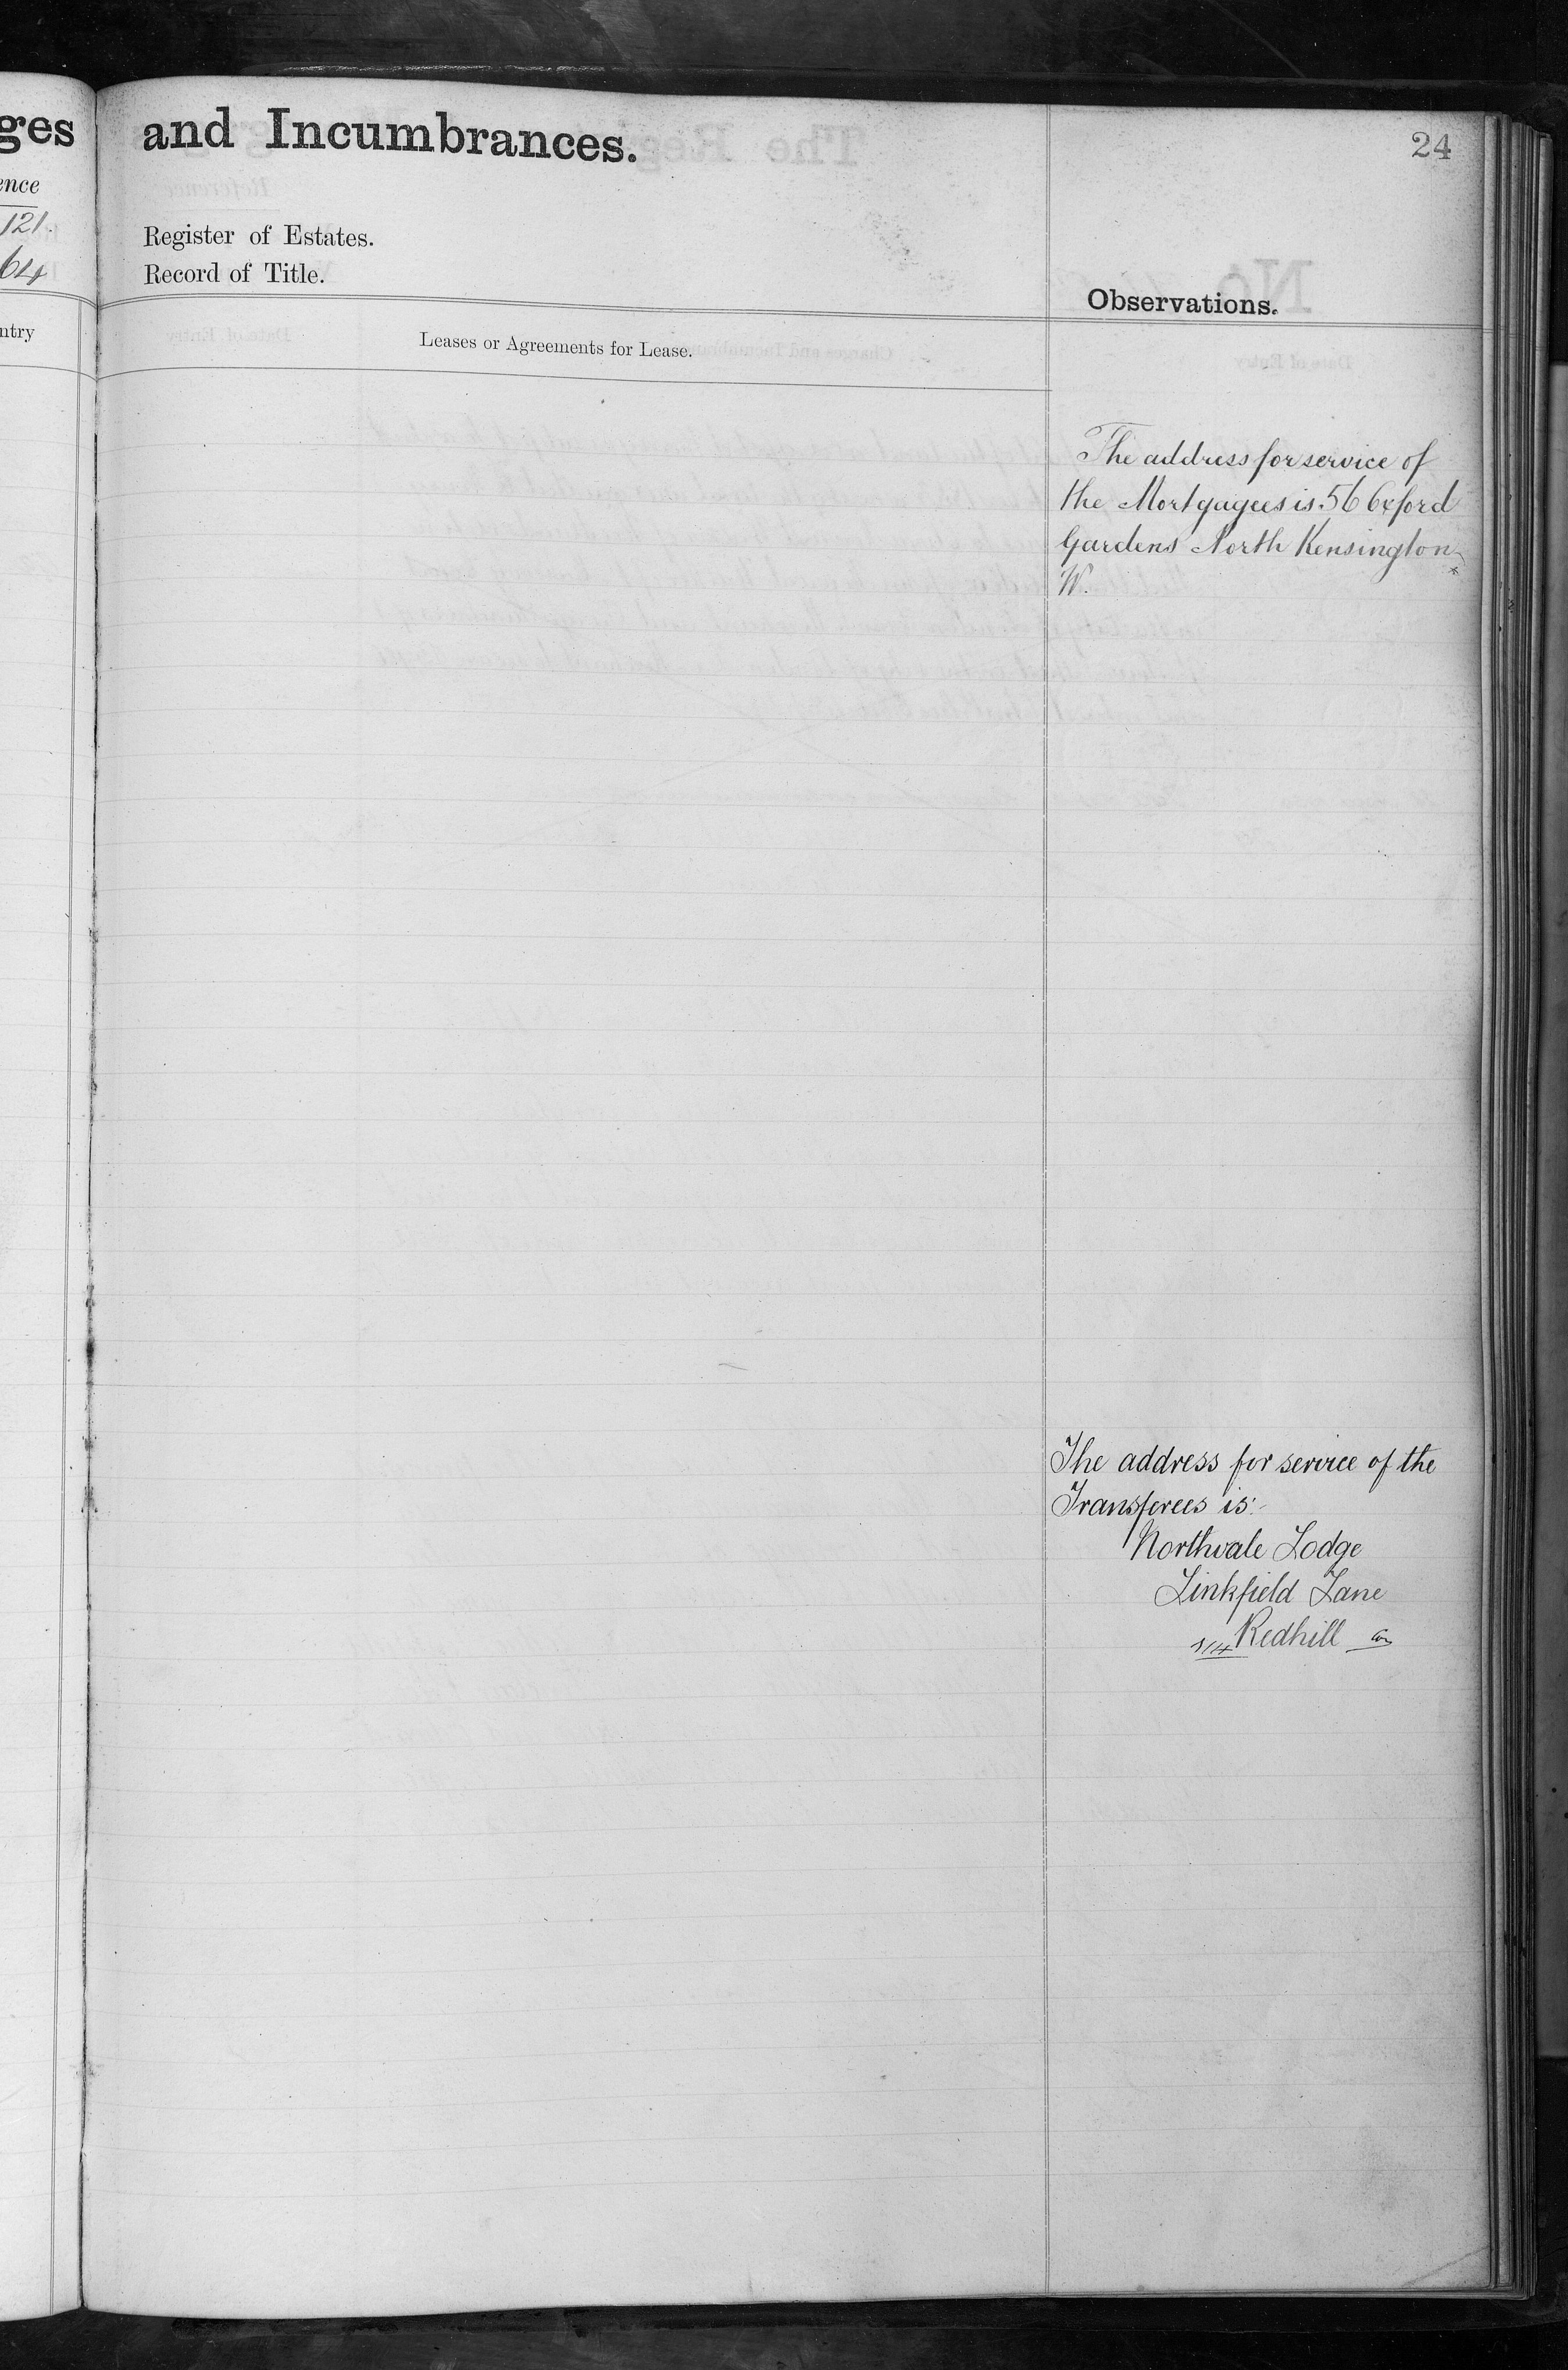 ges
and Incumbrances.
24
ence
121.
64
Register of Estates.
Record of Title.
Observations.
ntry
Leases or Agreements for Lease.
The address for service of
the Mortgagees is 56 Oxford
Gardens North Kensington
W.
The address for service of the
Transferees is:-
Northvale Lodge
Linkfield Lane
Redhill